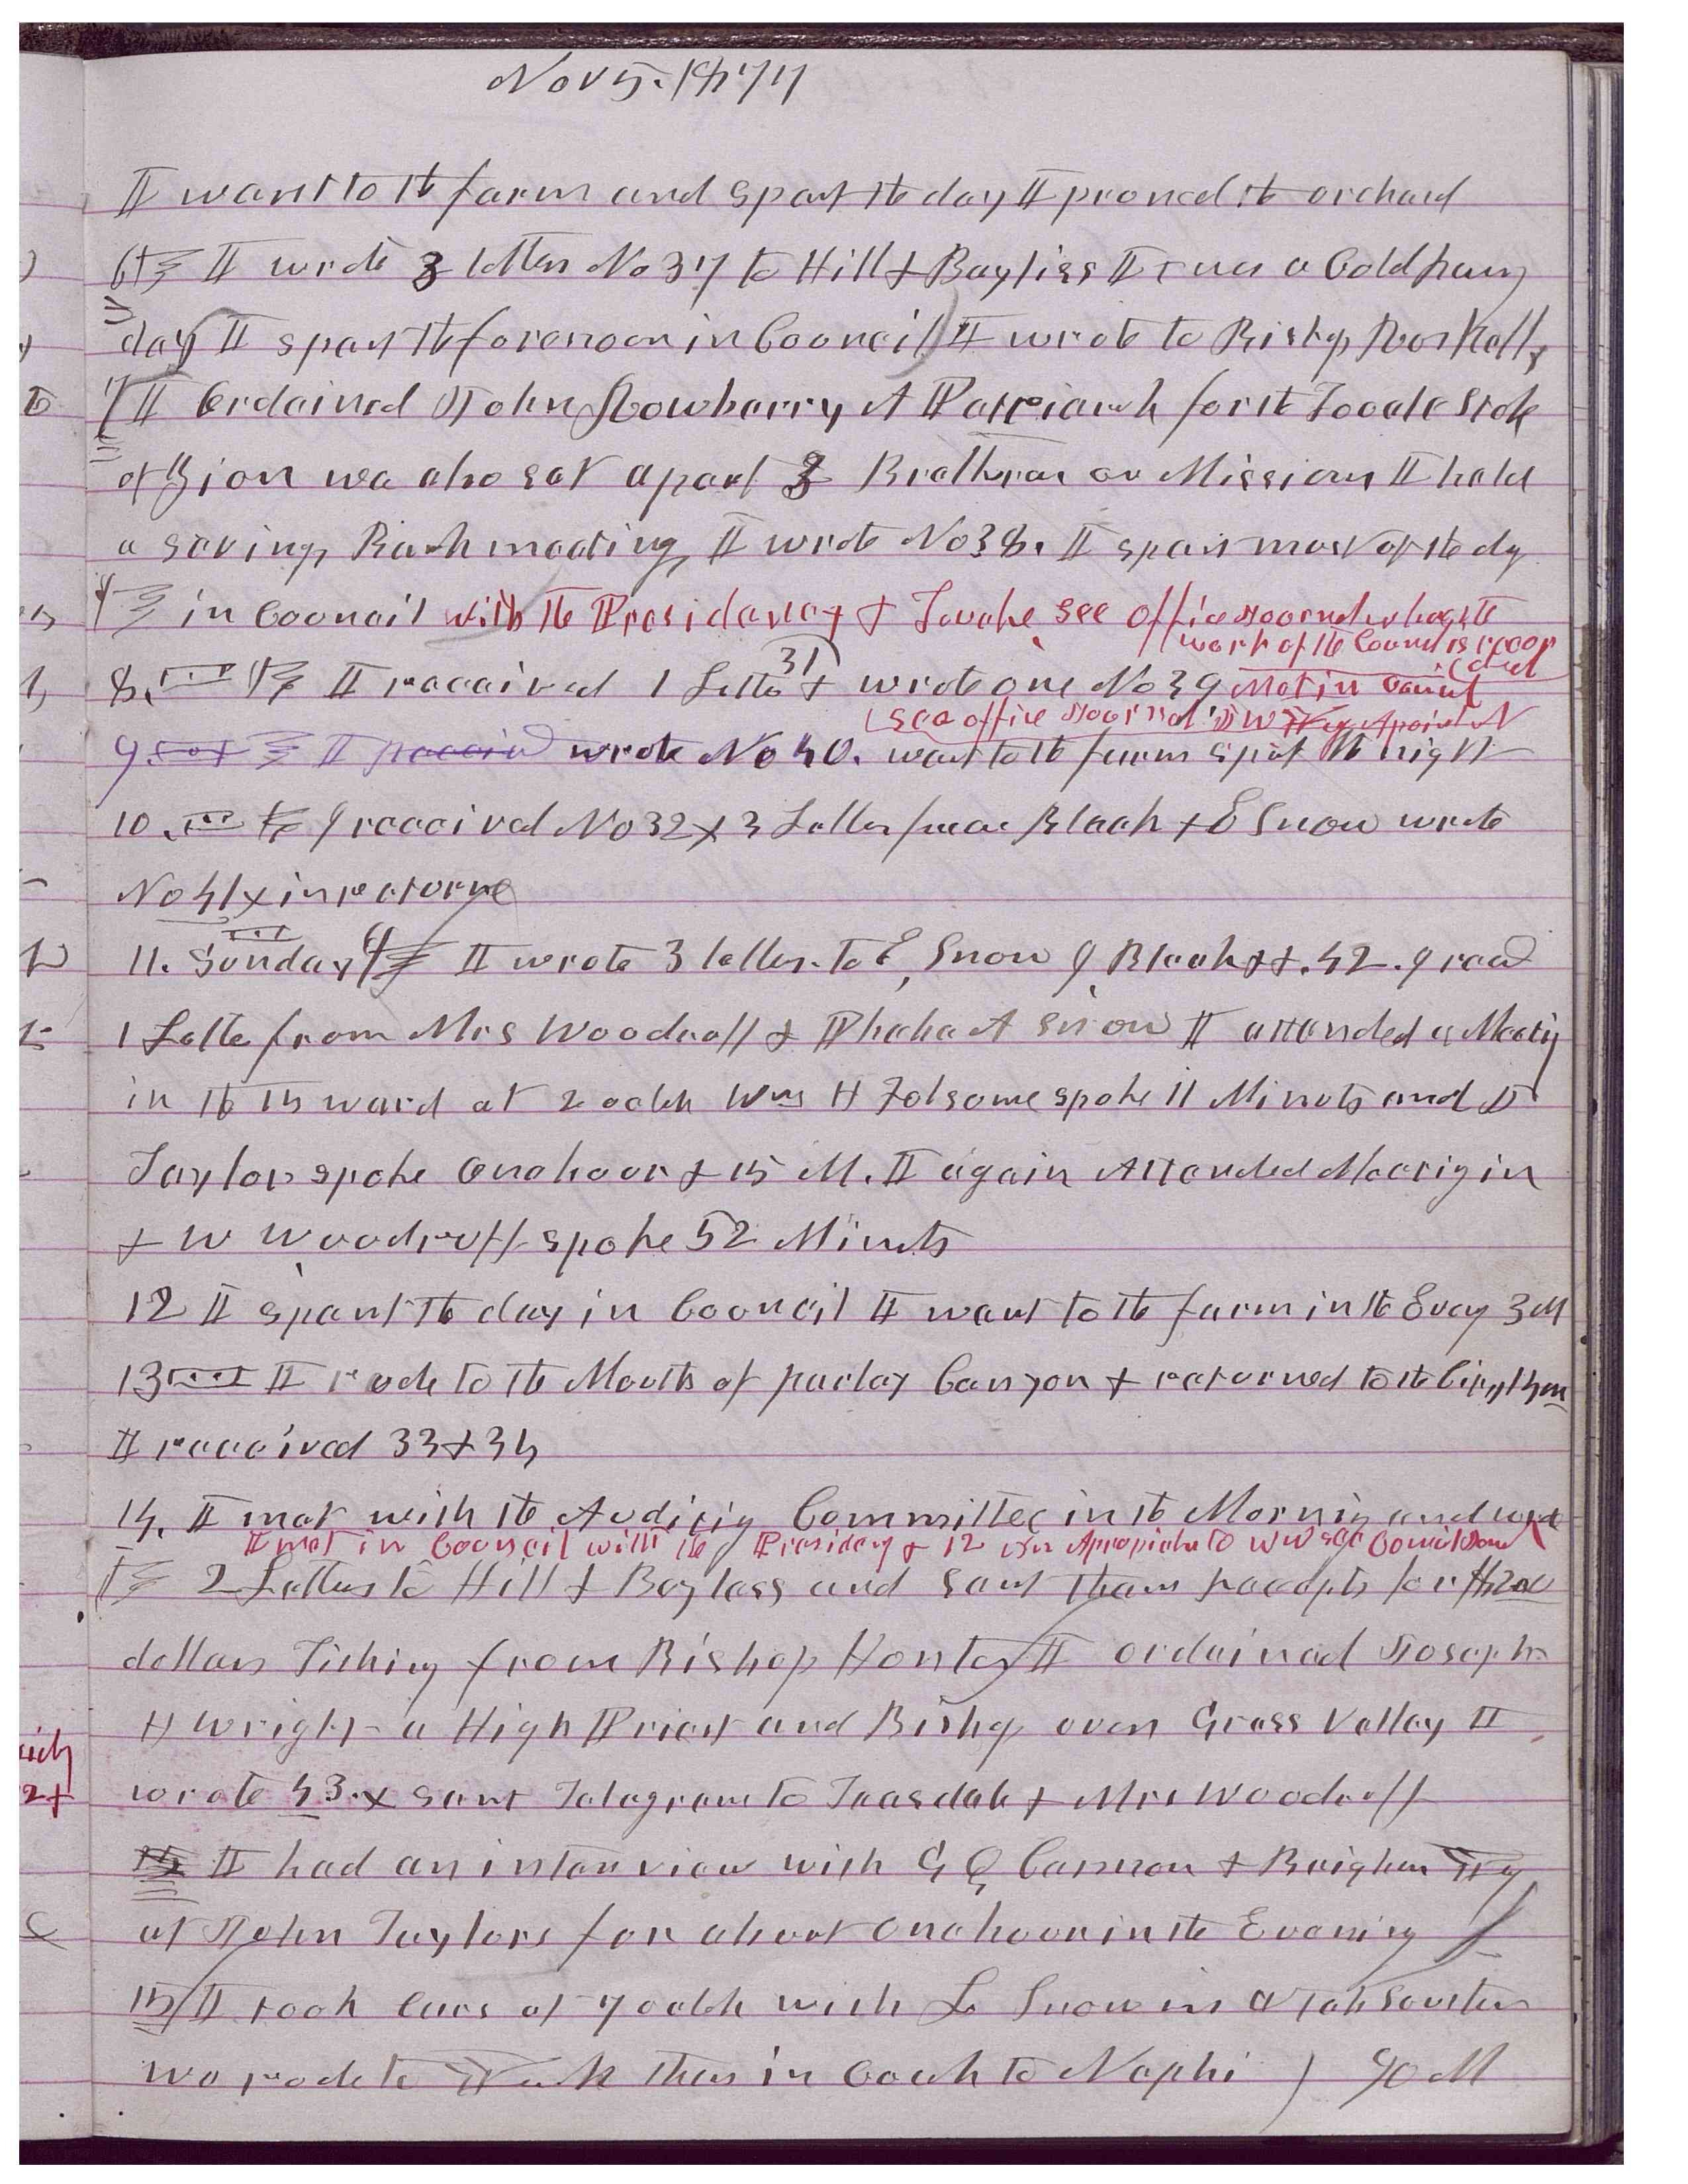 Nov 5. 1877
I went to the farm and spent the day I pruned the orchard
6 I wrote 3 letters No 37 to Hill & Bayliss It was a Cold hevy
day I spent the forenoon in Council I wrote to Bishop
7 I Ordained John Rowberry A Patriarch for the Tooele Stake
of Zion we also set apart 3 Brethren on Missions I held
a saving Bank meeting I wrote No 38. I spent most of the dy
in Council with the Presidency & Twelve see office Journal where the
work of the Council is recorded
8. I received 1 Letter 31 & wrote one No 39 Met in Council
see office Journal
9. I received wrote No 40. went to the farm spent the night
10. I received No 32 & 3 Letters from Bleak & E Snow wrote
No 41 & in returne
11. Sunday I wrote 3 letters to E, Snow J, Bleak & 42. I recd
1 Letter from Mrs Woodruff & Phebe A Snow I attended a Meeting
in the 15 ward at 2 oclok Wm H Folsome spoke 11 Minuts and J
Taylor spoke One hour & 15 M. I again Attended Meetig in
& W Woodruff spoke 52 Minuts
12 I spent the day in Council I went to the farm in the Eveg 3 M
13 I rode to the Mouth of parley Canyon & returned to the City
I received 33 & 34
14. I met with the Auditig Committee in the Mornig and wrote
I met in Council with the Presidency & 12
2 Letters to Hill & Bayless and sent them receipts for
dollars Tithing from Bishop Hunter I ordained Joseph
H Wright a High Priest and Bishop over Grass Valley I
wrote 43. & sent Telegram to Teasdale & Mrs Woodruff
I had an interview with G Q Cannon & Brigham Yg
at John Taylors for about One hour in the Evening
15 I took cars at 7 oclok with L Snow in Utah Southern
we rode to York then in Coach to Nephi 90 M